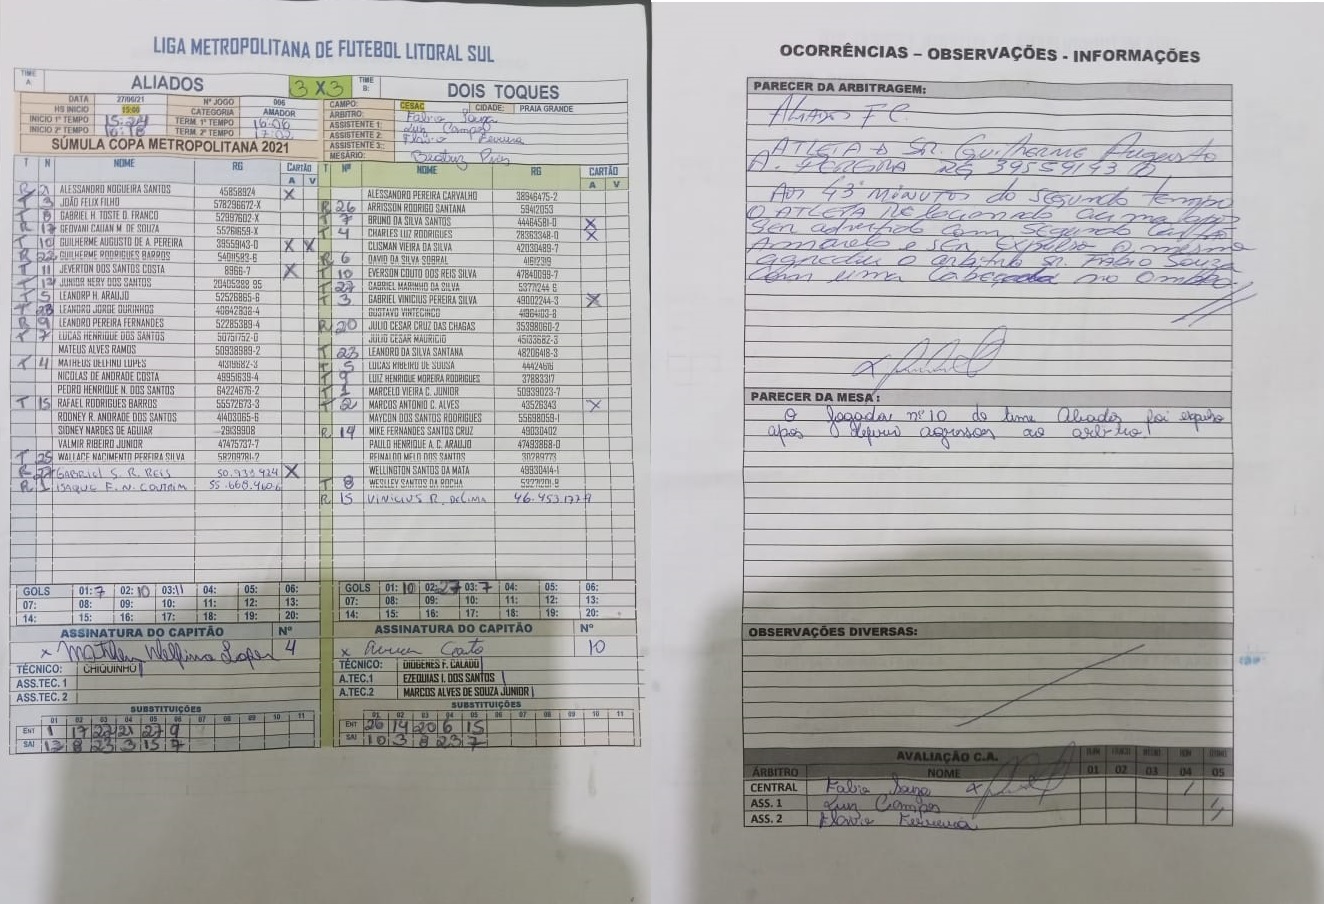 LIGA METROPOLITANA DE FUTEBOL LITORAL SUL
TIME A: ALIADOS 3 X 3 TIME B: DOIS TOQUES
DATA 27/06/21 Nº JOGO 006
HS INICIO 15:00 CATEGORIA AMADOR
INICIO 1º TEMPO 15:24 TERM. 1º TEMPO 16:06
INICIO 2º TEMPO 16:18 TERM. 2º TEMPO 17:02
CAMPO: CESAC CIDADE: PRAIA GRANDE
ÁRBITRO Fabio Souza
ASSISTENTE 1: Luiz Campos
ASSISTENTE 2: Flavio Ferreira
ASSISTENTE 3:
MESÁRIO: Beatriz
SÚMULA COPA METROPOLITANA 2021
T N NOME RG CARTÃO A V
R 21 ALESSANDRO NOGUEIRA SANTOS 45858924 X
T 3 JOÃO FELIX FILHO 578296672-X
T 8 GABRIEL H. TOSTE D. FRANCO 52997602-X
R 17 GEOVANI CAUAN M. DE SOUZA 55261659-X
T 10 GUILHERME AUGUSTO DE A. PEREIRA 39559143-0 X X
R 22 GUILHERME RODRIGUES BARROS 54011583-6
T 11 JEVERTON DOS SANTOS COSTA 8966-7 X
T JUNIOR NERY DOS SANTOS
T 5 LEANDRP H. ARAUJO 52526865-6
T 23 LEANDRO JORGE OURINHOS 40642838-4
R 9 LEANDRO PEREIRA FERNANDES 52285389-4
T 7 LUCAS HENRIQUE DOS SANTOS 50751752-0
MATEUS ALVES RAMOS 50938989-2
T 4 MATHEUS DELFINO LOPES 41319682-3
NICOLAS DE ANDRADE COSTA 49951639-4
PEDRO HENRIQUE N. DOS SANTOS 64224676-2
T 15 RAFAEL RODRIGUES BARROS 55572673-3
RODNEY R. ANDRADE DOS SANTOS 44403065-6
SIDNEY NARDES DE AGUIAR 28139908
VALMIR RIBEIRO JUNIOR 47475737-7
T 25 WALLACE NACIMENTO PEREIRA SILVA 58209781-2
R 27 GABRIEL S. R. REIS 50.933.424 X
R 1 ISAQUE F. N. COUTRIM 55.668.460
T Nº NOME RG CARTÃO A V
ALESSANDRO PEREIRA CARVALHO 38946475-2
R 26 ARRISSON RODRIGO SANTANA 59412053
T 7 BRUNO DA SILVA SANTOS 44464581-0 X
T 4 CHARLES LUZ RODRIGUES 28363348-0 X
CLISMAN VIEIRA DA SILVA 42030489-7
R 6 DAVID DA SILVA SOBRAL 41612319
T 10 EVERSON COUTO DOS REIS SILVA 47840099-7
T 27 GABRIEL MARINHO DA SILVA 53771244-6
T 3 GABRIEL VINICIUS PEREIRA SILVA 49002244-3 X
GUSTAVO VINTECINCO 41964103-8
R 20 JULIO CESAR CRUZ DAS CHAGAS 35398060-2
JULIO CESAR MAURICIO 45133682-3
T 23 LEANDRO DA SILVA SANTANA 48206418-3
T 5 LUCAS RIBEIRO DE SOUSA 44424616
T 9 LUIZ HENRIQUE MOREIRA RODRIGUES 37883317
T 1 MARCELO VIEIRA C. JUNIOR 50939023-7
T 2 MARCOS ANTONIO C. ALVES 43526343 X
MAYCON DOS SANTOS RODRIGUES 55698059-1
R 14 MIKE FERNANDES SANTOS CRUZ 49030402
PAULO HENRIQUE A. C. ARAUJO 47493868-0
REINALDO MELO DOS SANTOS 30289773
WELLINGTON SANTOS DA MATA 49930414-1
T 8 WESLLEY SANTOS DA ROCHA 53271201-8
R 15 VINICIUS R. DE LIMA 46.453.177-9
GOLS 01: 7 02: 10 03: 11 04: 05: 06:
07: 08: 09: 10: 11: 12: 13:
14: 15: 16: 17: 18: 19: 20:
GOLS 01: 10 02: 27 03: 7 04: 05: 06:
07: 08: 09: 10: 11: 12: 13:
14: 15: 16: 17: 18: 19: 20:
ASSINATURA DO CAPITÃO Nº
x Matheus Delfino Lopes 4
ASSINATURA DO CAPITÃO Nº
x Couto 10
TÉCNICO: CHIQUINHO
ASS.TEC. 1
ASS.TEC. 2
TÉCNICO: DIOGENES F. CALADO
A.TEC.1 EZEQUIAS I. DOS SANTOS
A.TEC.2 MARCOS ALVES DE SOUZA JUNIOR
SUBSTITUIÇÕES
01 02 03 04 05 06 07 08 09 10 11
ENT 1 17 22 21 27 9
SAI 12 8 23 3 15 7
SUBSTITUIÇÕES
01 02 03 04 05 06 07 08 09 10 11
ENT 26 14 20 6 15
SAI 10 3 8 23 7
OCORRÊNCIAS – OBSERVAÇÕES - INFORMAÇÕES
PARECER DA ARBITRAGEM:
Aliados F.C.
ATLETA Sr. Guilherme Augusto
A. PEREIRA RG 39559143 0
Aos 43 minutos do segundo tempo
o ATLETA Relacionado acima apos
ser advertido com segundo cartão
Amarelo e ser expulso o mesmo
agrediu o arbitro Sr. Fabio Souza
com uma cabeçada no ombro.
PARECER DA MESA:
O jogador nº 10 do time Aliados foi expulso
após agressão ao arbitro!
OBSERVAÇÕES DIVERSAS:
AVALIAÇÃO C.A.
ÁRBITRO NOME 01 02 03 04 05
CENTRAL Fabio Souza
ASS. 1 Luiz Campos
ASS. 2 Flavio Ferreira